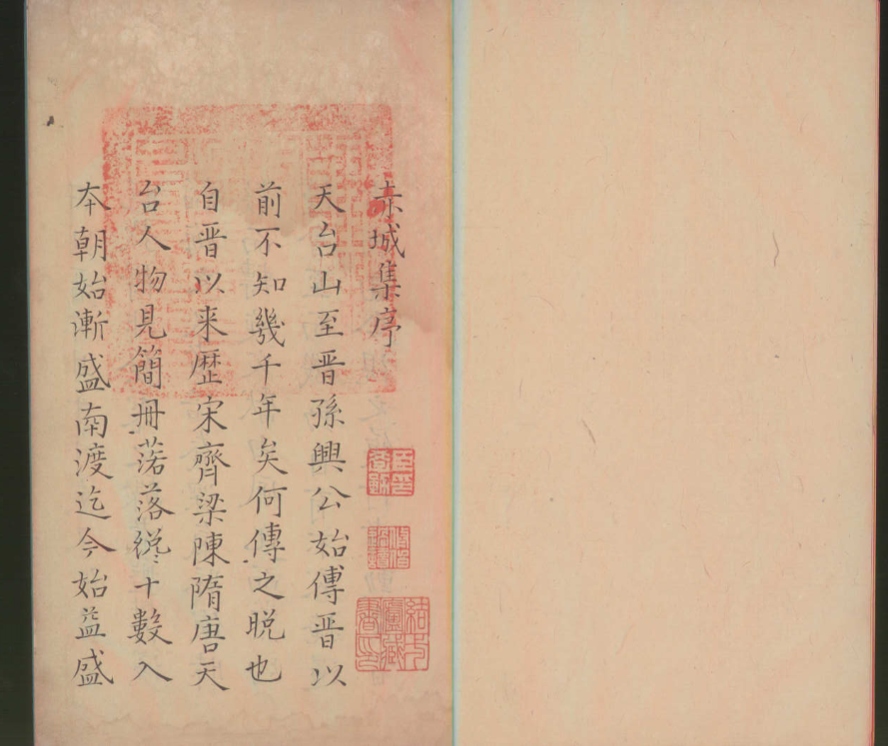 赤城集序
天台山至晋孫興公始傳晋以
前不知幾千年矣何傳之晚也
自晋以来歷宋齊梁陳隋唐天
台人物見簡冊落落纔十數入
本朝始漸盛南渡迄今始益盛
結一廬藏書印